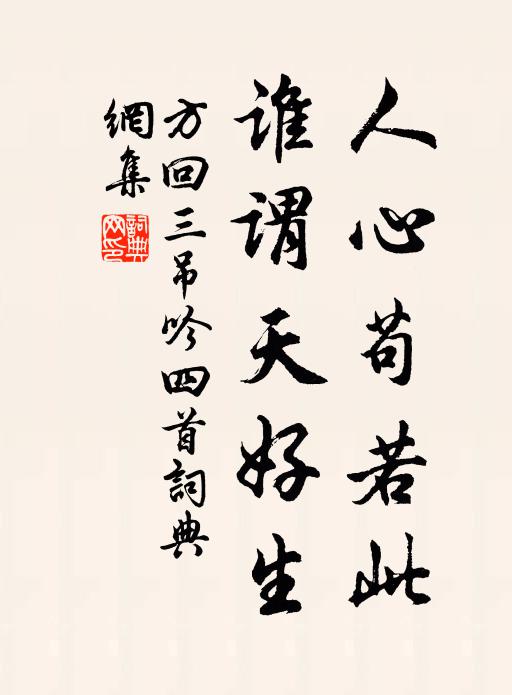 人心苟若此
誰謂天好生
方回三吊吟四首詞典
網集
詞典
网印